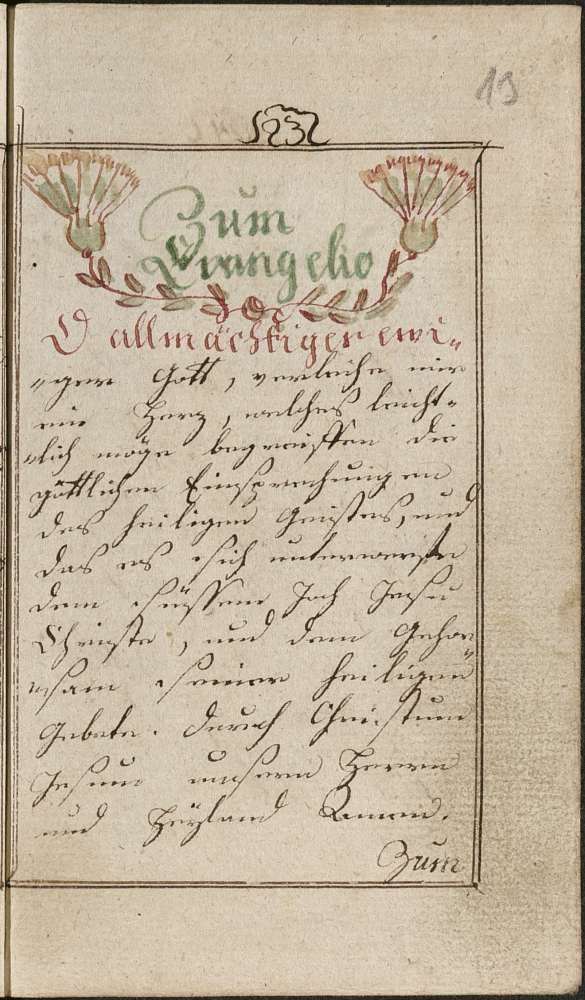 19
23
Zum
Evangelio
O allmächtiger ewi„
„ger Gott, verleihe mir
ein Herz, welches leicht„
„lich möge begreiffen die
göttlichen Einsprechungen
des heiligen Geistes, und
das es sich unterwerffe
dem süssen Joch Jesu
Christe, und dem Gehor„
„sam seiner heiligen
Gebote. Durch Christum
Jesum unsern Herrn
und Heyland Amen.
Zum